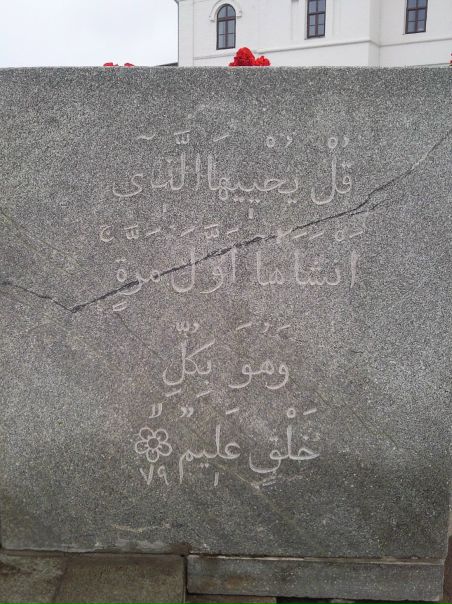 قُلْ يُحْيِيهَا الَّذِىٓ
اَنْشَاَهَٓا اَوَّلَ مَرَّةٍۜ
وَهُوَ بِكُلِّ
خَلْقٍ عَلِيمٌۙ ٧٩